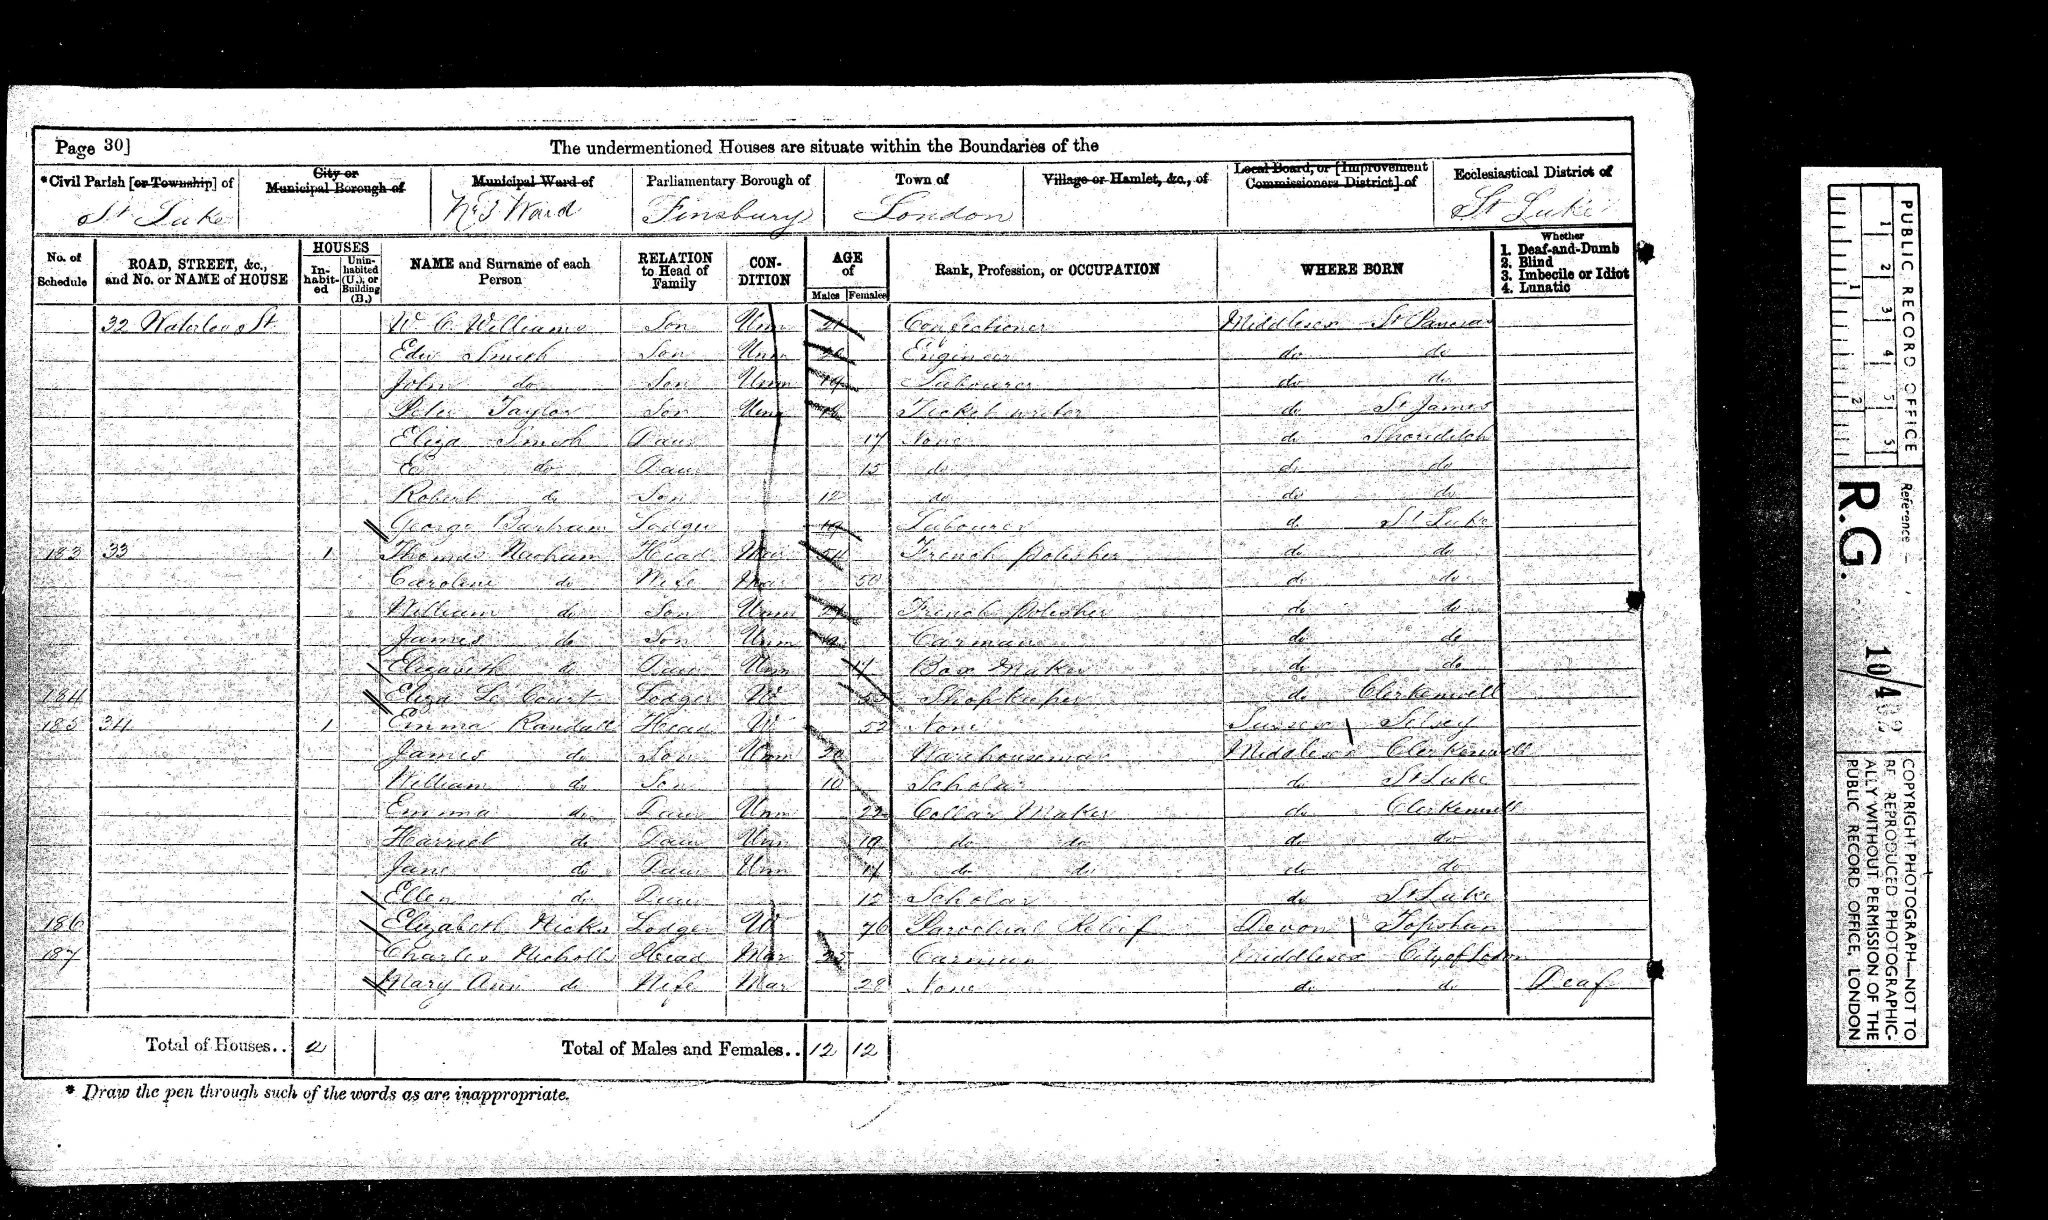 Page 30]
The undermentioned Houses are situate within the Boundaries of the
*Civil Parish [or Township] of City or Municipal Borough of Municipal Ward of Parliamentary Borough of Town of Village or Hamlet, &c., of Local Board, or [Improvement Commissioners District] of Ecclesiastical District of
St Luke No 3 Ward Finsbury London St Luke
No. of Schedule ROAD, STREET, &c., and No. or NAME of HOUSE HOUSES Inhabited Uninhabited (U.), or Building (B.) NAME and Surname of each Person RELATION to Head of Family CONDITION AGE of Males Females Rank, Profession, or OCCUPATION WHERE BORN Whether 1. Deaf-and-Dumb 2. Blind 3. Imbecile or Idiot 4. Lunatic
32 Waterloo St W C Williams Son Unm 21 Confectioner Middlesex St Pancras
Edw Smith Son Unm Engineer do do
John do Son Unm 19 Labourer do do
Peter Taylor Son Unm Ticket writer do St James
Eliza Smith Daur 17 None do Shoreditch
E do Daur 15 do do do
Robert do Son 12 do do do
George Barham Lodger 19 Labourer do St Luke
183 33 1 Thomas Head Mar 54 French polisher do do
Caroline do Wife Mar 50 do do
William do Son Unm 21 French polisher do do
James do Son Unm Carman do do
Elizabeth do Daur Unm Box Maker do do
184 Eliza Le Court Lodger W Shopkeeper do Clerkenwell
185 34 1 Emma Randall Head W 52 None Sussex Selsey
James do Son Unm 20 Warehouseman Middlesex Clerkenwell
William do Son 10 Scholar do St Luke
Emma do Daur Unm 22 Collar Maker do Clerkenwell
Harriet do Daur Unm 19 do do do do
Jane do Daur Unm do do do do
Ellen do Daur 12 Scholar do St Luke
186 Elizabeth Hicks Lodger W 76 Parochial Relief Devon Topsham
187 Charles Nicholls Head Mar 35 Carman Middlesex City of London
Mary Ann do Wife Mar 28 None do do Deaf
Total of Houses.. 2 Total of Males and Females.. 12 12
* Draw the pen through such of the words as are inappropriate.
PUBLIC RECORD OFFICE
1 2 3 4 5 5
1 2
Reference :-
R.G. 10/
COPYRIGHT PHOTOGRAPH—NOT TO
BE REPRODUCED PHOTOGRAPHIC-
ALLY WITHOUT PERMISSION OF THE
PUBLIC RECORD OFFICE, LONDON